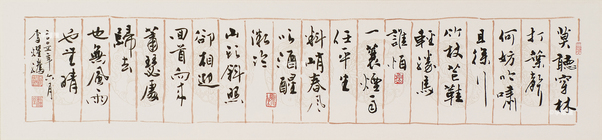 莫聽穿林
打葉聲
何妨吟嘯
且徐行
竹杖芒鞋
輕勝馬
誰怕
一蓑煙雨
任平生
料峭春風
吹酒醒
微冷
山頭斜照
卻相迎
回首向來
蕭瑟處
歸去
也無風雨
也無晴
二〇一五年六月